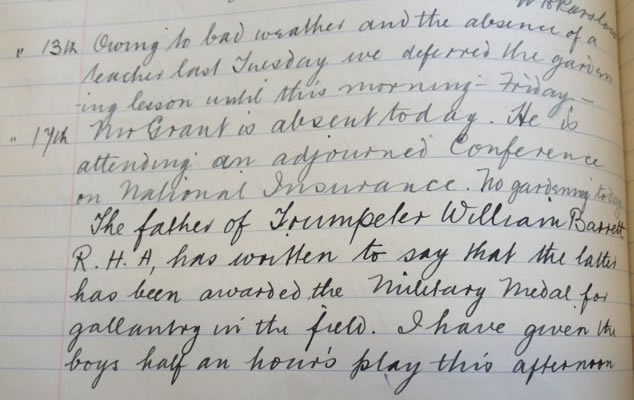 " 13th Owing to bad weather and the absence of a
teacher last Tuesday we deferred the garden
-ing lesson until this morning - Friday -
" 17th Mr Grant is absent today. He is
attending an adjourned Conference
on National Insurance. No gardening today
The father of Trumpeter William Barrett
R.H.A, has written to say that the latter
has been awarded the Military Medal for
gallantry in the field. I have given the
boys half an hour's play this afternoon